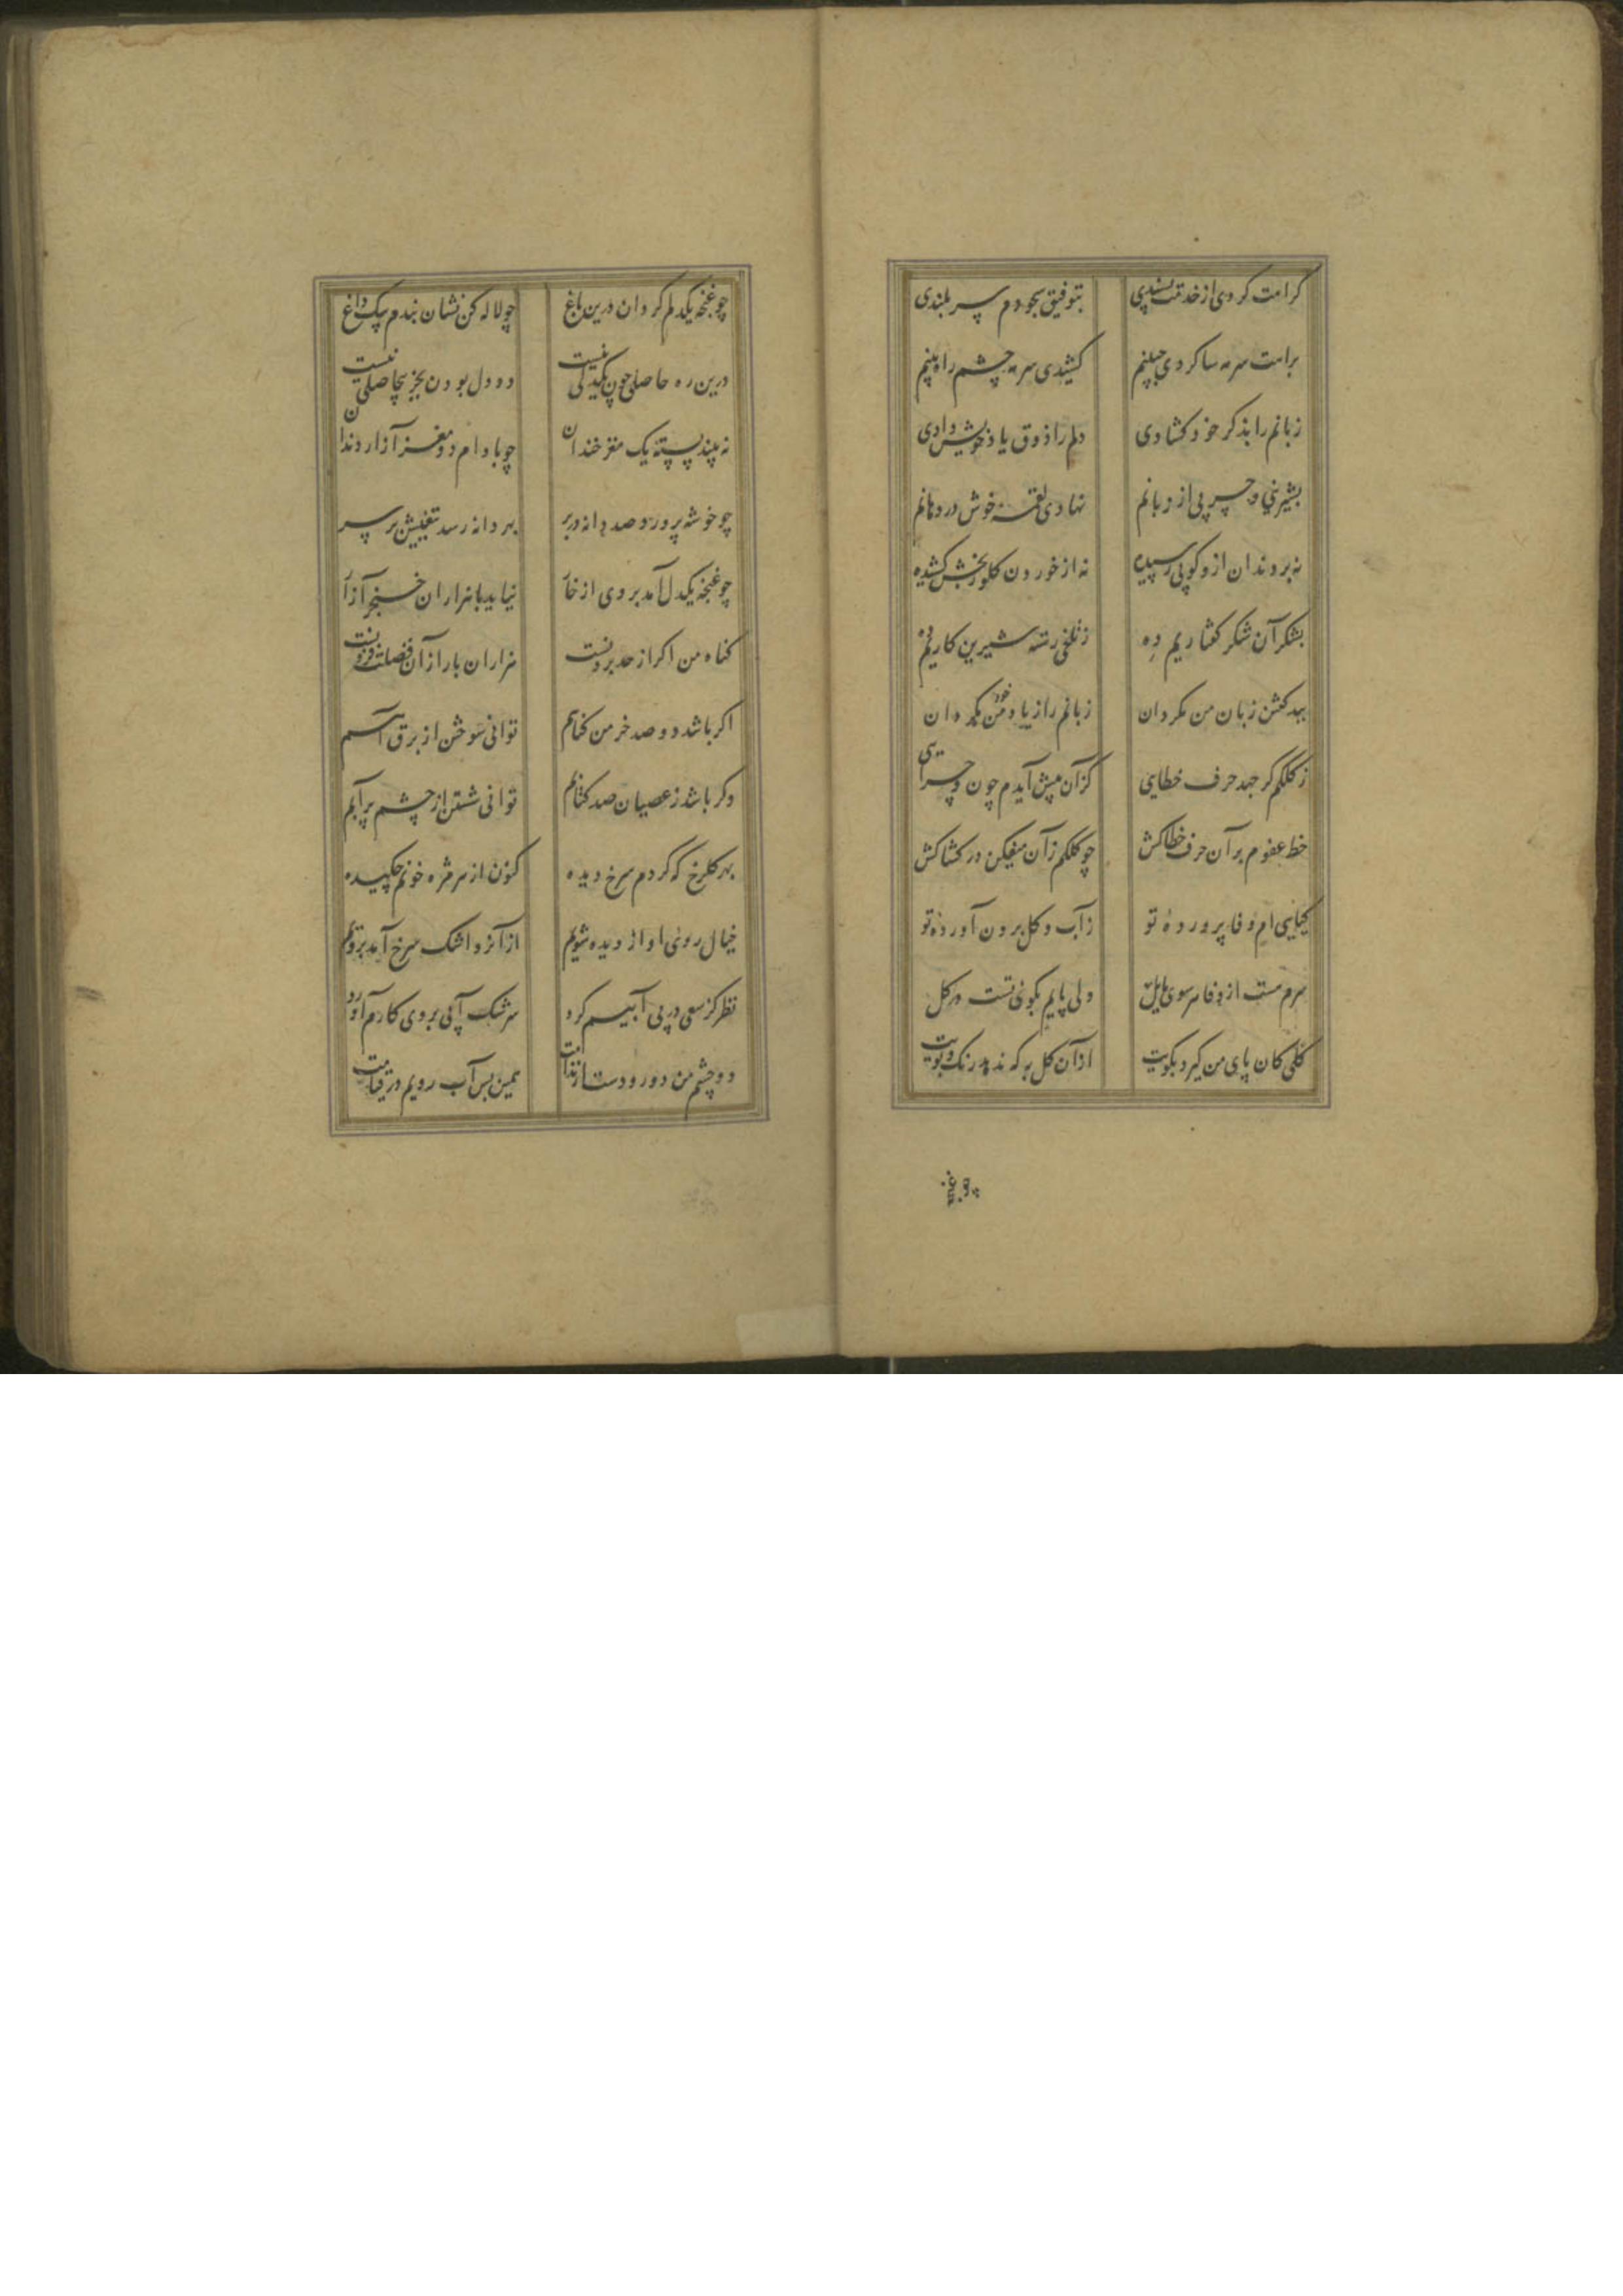 کرامت کردی از خدمت پسندی بتوفیق سجودم سر بلندی
براهت سرمه سا کردی جبینم کشیدی سرمه چشم راه بینم
زبانم را بذکر خود کشادی دلم را ذوق یاد خویش دادی
بشیرینی و چربی از زبانم نهادی لقمه خوش در دهانم
نه بر دندان ازو کوبی رسیده نه از خوردن کلو رنجش کشیده
بشکر آن شکر کفتاریم ده ز تلخی رسته شیرین کاریم ده
بهد کفتن زبان من مکردان زبانم را زیاد من مکردان
ز کلکم کر جهد حرف خطایی کزآن پیش آیدم چون و چرایی
خط عفوم بر آن حرف خطا کش چو کلکم زآن میفکن در کشاکش
کیاهی ام وفا پرورده تو ز آب و کل برون آورده تو
سرم مست از وفا سوی مایل ولی پایم بکوی تست در کل
کلی کان پای من کیرد بکویت از آن کل به که ندهد رنک و بویت
چو غنچه
چو غنچه یکدلم کردان درین باغ چو لاله کن نشان بندم بیک داغ
درین ره حاصلی چون یکدلی نیست دو دل بودن بجز بیحاصلی نیست
نه بیند پسته یک مغز خندان چو بادام دو مغز آزار دندان
چو خوشه پرورد صد دانه در بر بهر دانه رسد تیغیش بر سر
چو غنچه یکدل آمد بر وی از خار نیاید با هزاران خنجر آزار
کناه من اکر از حد برونست هزاران بار از آن فضلت فزونست
اکر باشد دو صد خرمن کناهم توانی سوختن از برق آهم
وکر باشد ز عصیان صد کتابم توانی شستن از چشم پر آبم
بهر کلرخ که کردم سرخ دیده کنون از سر مژه خونم چکیده
خیال روی او از دیده شویم از آنرو اشک سرخ آمد برویم
نظر کز سعی در بی آبیم کرد سرشک آبی بروی کارم آورد
دو چشم من دو رودست از ندامت همین بس آب رویم در قیامت